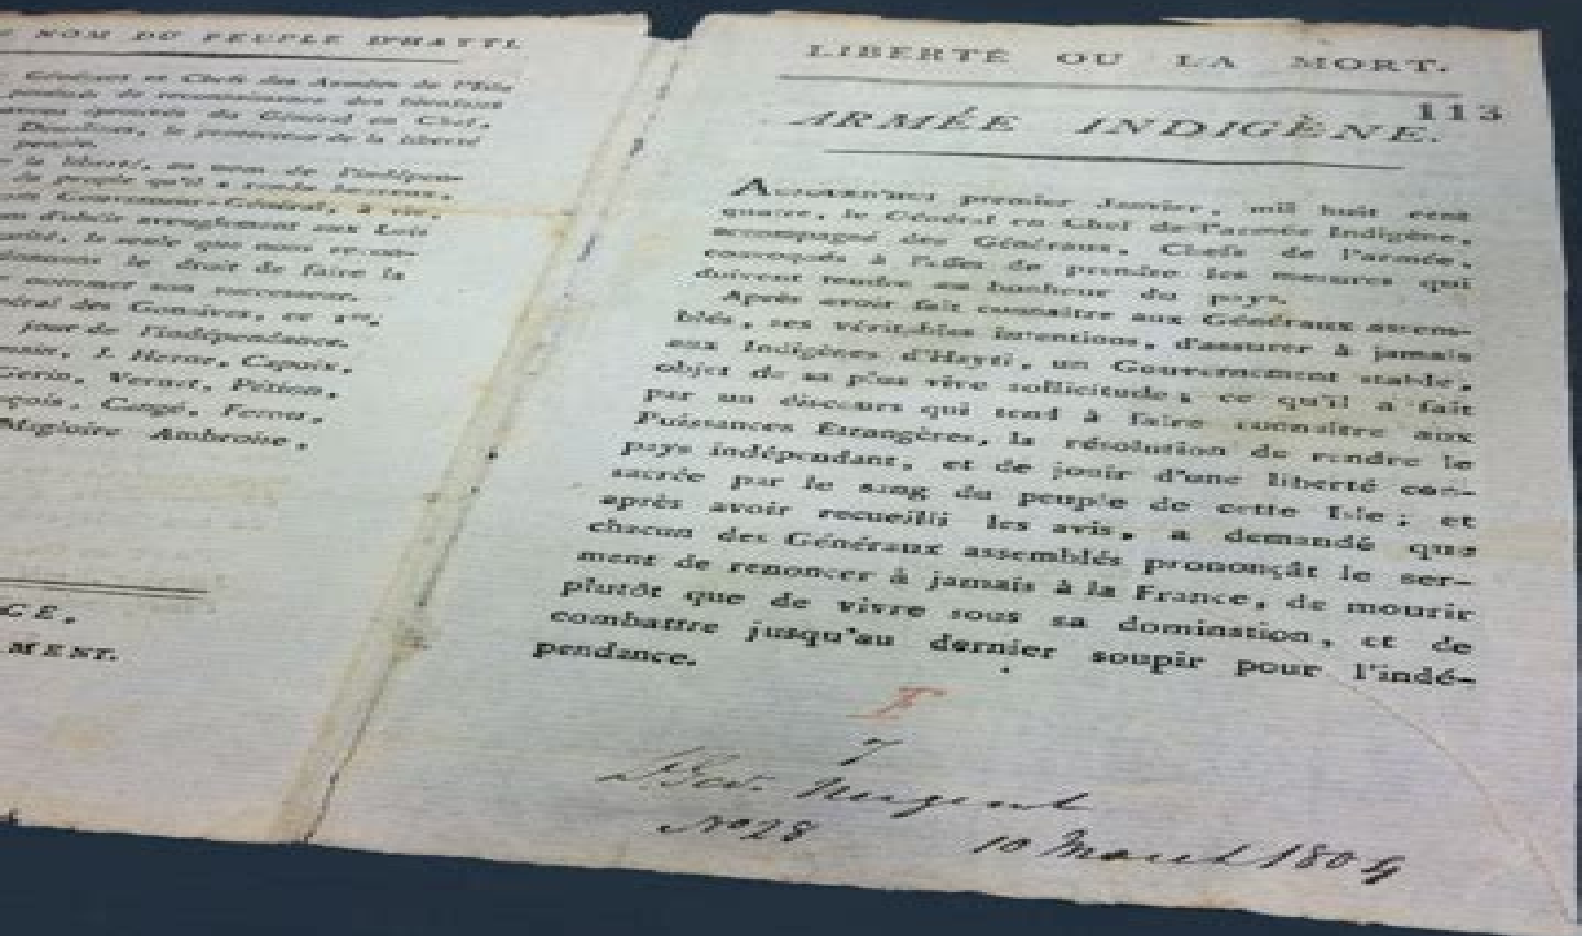 NOM DU PEUPLE D'HAYTI.
Généraux et Chefs des Armées de l'Isle
pénétrés de reconnaissance des bienfaits
éprouvés du Général en Chef,
Dessalines, le protecteur de la liberté
peuple.
la liberté, au nom de l'indépen-
du peuple qu'il a rendu heureux,
Gouverneur-Général, à vie,
d'obéir aveuglement aux Lois
autorité, la seule que nous
donnons le droit de faire la
nommer son successeur.
des Gonaïves, ce
jour de l'indépendance.
J. Herne, Capoix,
Gerin, Vernet, Pétion,
Cangé, Ferou,
Magloire Ambroise,
LIBERTÉ OU LA MORT.
113
ARMÉE INDIGÈNE.
AUJOURD'HUI premier Janvier, mil huit cent
quatre, le Général en Chef de l'armée Indigène,
accompagné des Généraux, Chefs de l'armée,
convoqués à l'effet de prendre les mesures qui
doivent tendre au bonheur du pays.
Après avoir fait connaître aux Généraux assem-
blés, ses véritables intentions, d'assurer à jamais
aux Indigènes d'Hayti, un Gouvernement stable,
objet de sa plus vive sollicitude; ce qu'il a fait
par un discours qui tend à faire connaître aux
Puissances Etrangères, la résolution de rendre le
pays indépendant, et de jouir d'une liberté con-
sacrée par le sang du peuple de cette Isle; et
après avoir recueilli les avis, a demandé que
chacun des Généraux assemblés prononçât le ser-
ment de renoncer à jamais à la France, de mourir
plutôt que de vivre sous sa domination, et de
combattre jusqu'au dernier soupir pour l'indé-
pendance.
Nugent
No 28 10 March 1804